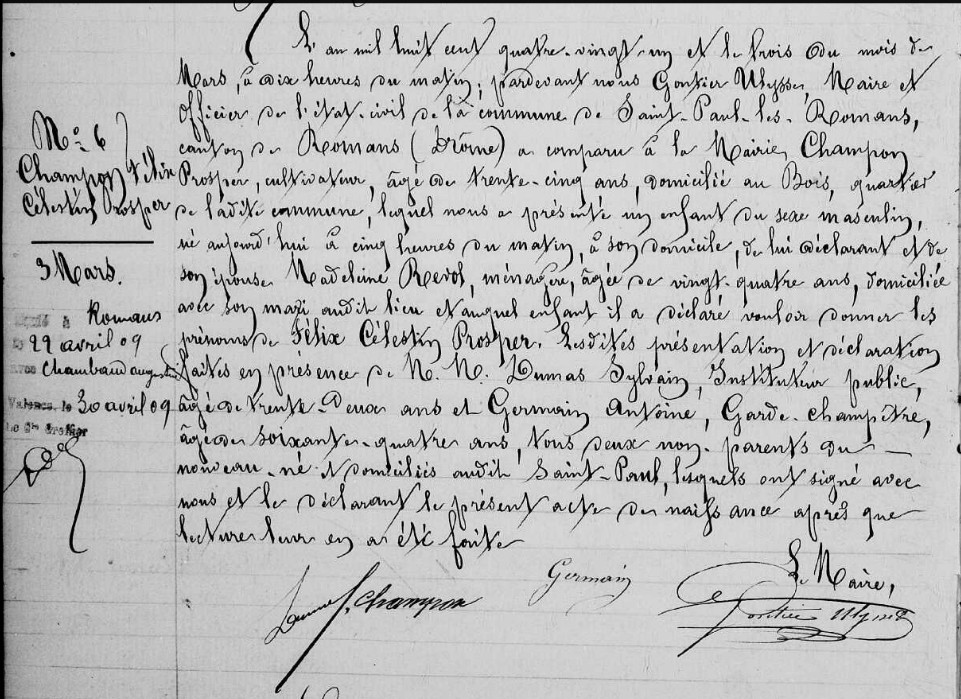 N° 6
Champon Félix
Célestin Prosper
3 Mars.
Marié à Romans
le 22 avril 09
avec Chambaud Augustine
Valence, le 30 avril 09
Le Gr. Greffier
L'an mil huit cent quatre-vingt-un et le trois du mois de
Mars, à dix heures du matin, pardevant nous Gontier Ulysse, Maire et
Officier de l'état-civil de la commune de Saint-Paul-les-Romans,
canton de Romans (Drôme) a comparu à la Mairie, Champon
Prosper, cultivateur, âgé de trente-cinq ans, domicilié au Bois, quartier
de ladite commune, lequel nous a présenté un enfant du sexe masculin,
né aujourd'hui à cinq heures du matin, à son domicile, de lui déclarant et de
son épouse Madeleine Revol, ménagère, âgée de vingt-quatre ans, domiciliée
avec son mari audit lieu et auquel enfant il a déclaré vouloir donner les
prénoms de Félix Célestin Prosper. Lesdites présentation et déclaration
faites en présence de M. M. Dumas Sylvain, Instituteur public,
âgé de trente-deux ans et Germain Antoine, Garde-champêtre,
âgé de soixante-quatre ans, tous deux non-parents du
nouveau-né et domiciliés audit Saint-Paul, lesquels ont signé avec
nous et le déclarant le présent acte de naissance après que
lecture leur en a été faite
Le Maire,
Dumas Champon Germain Gontier Ulysse